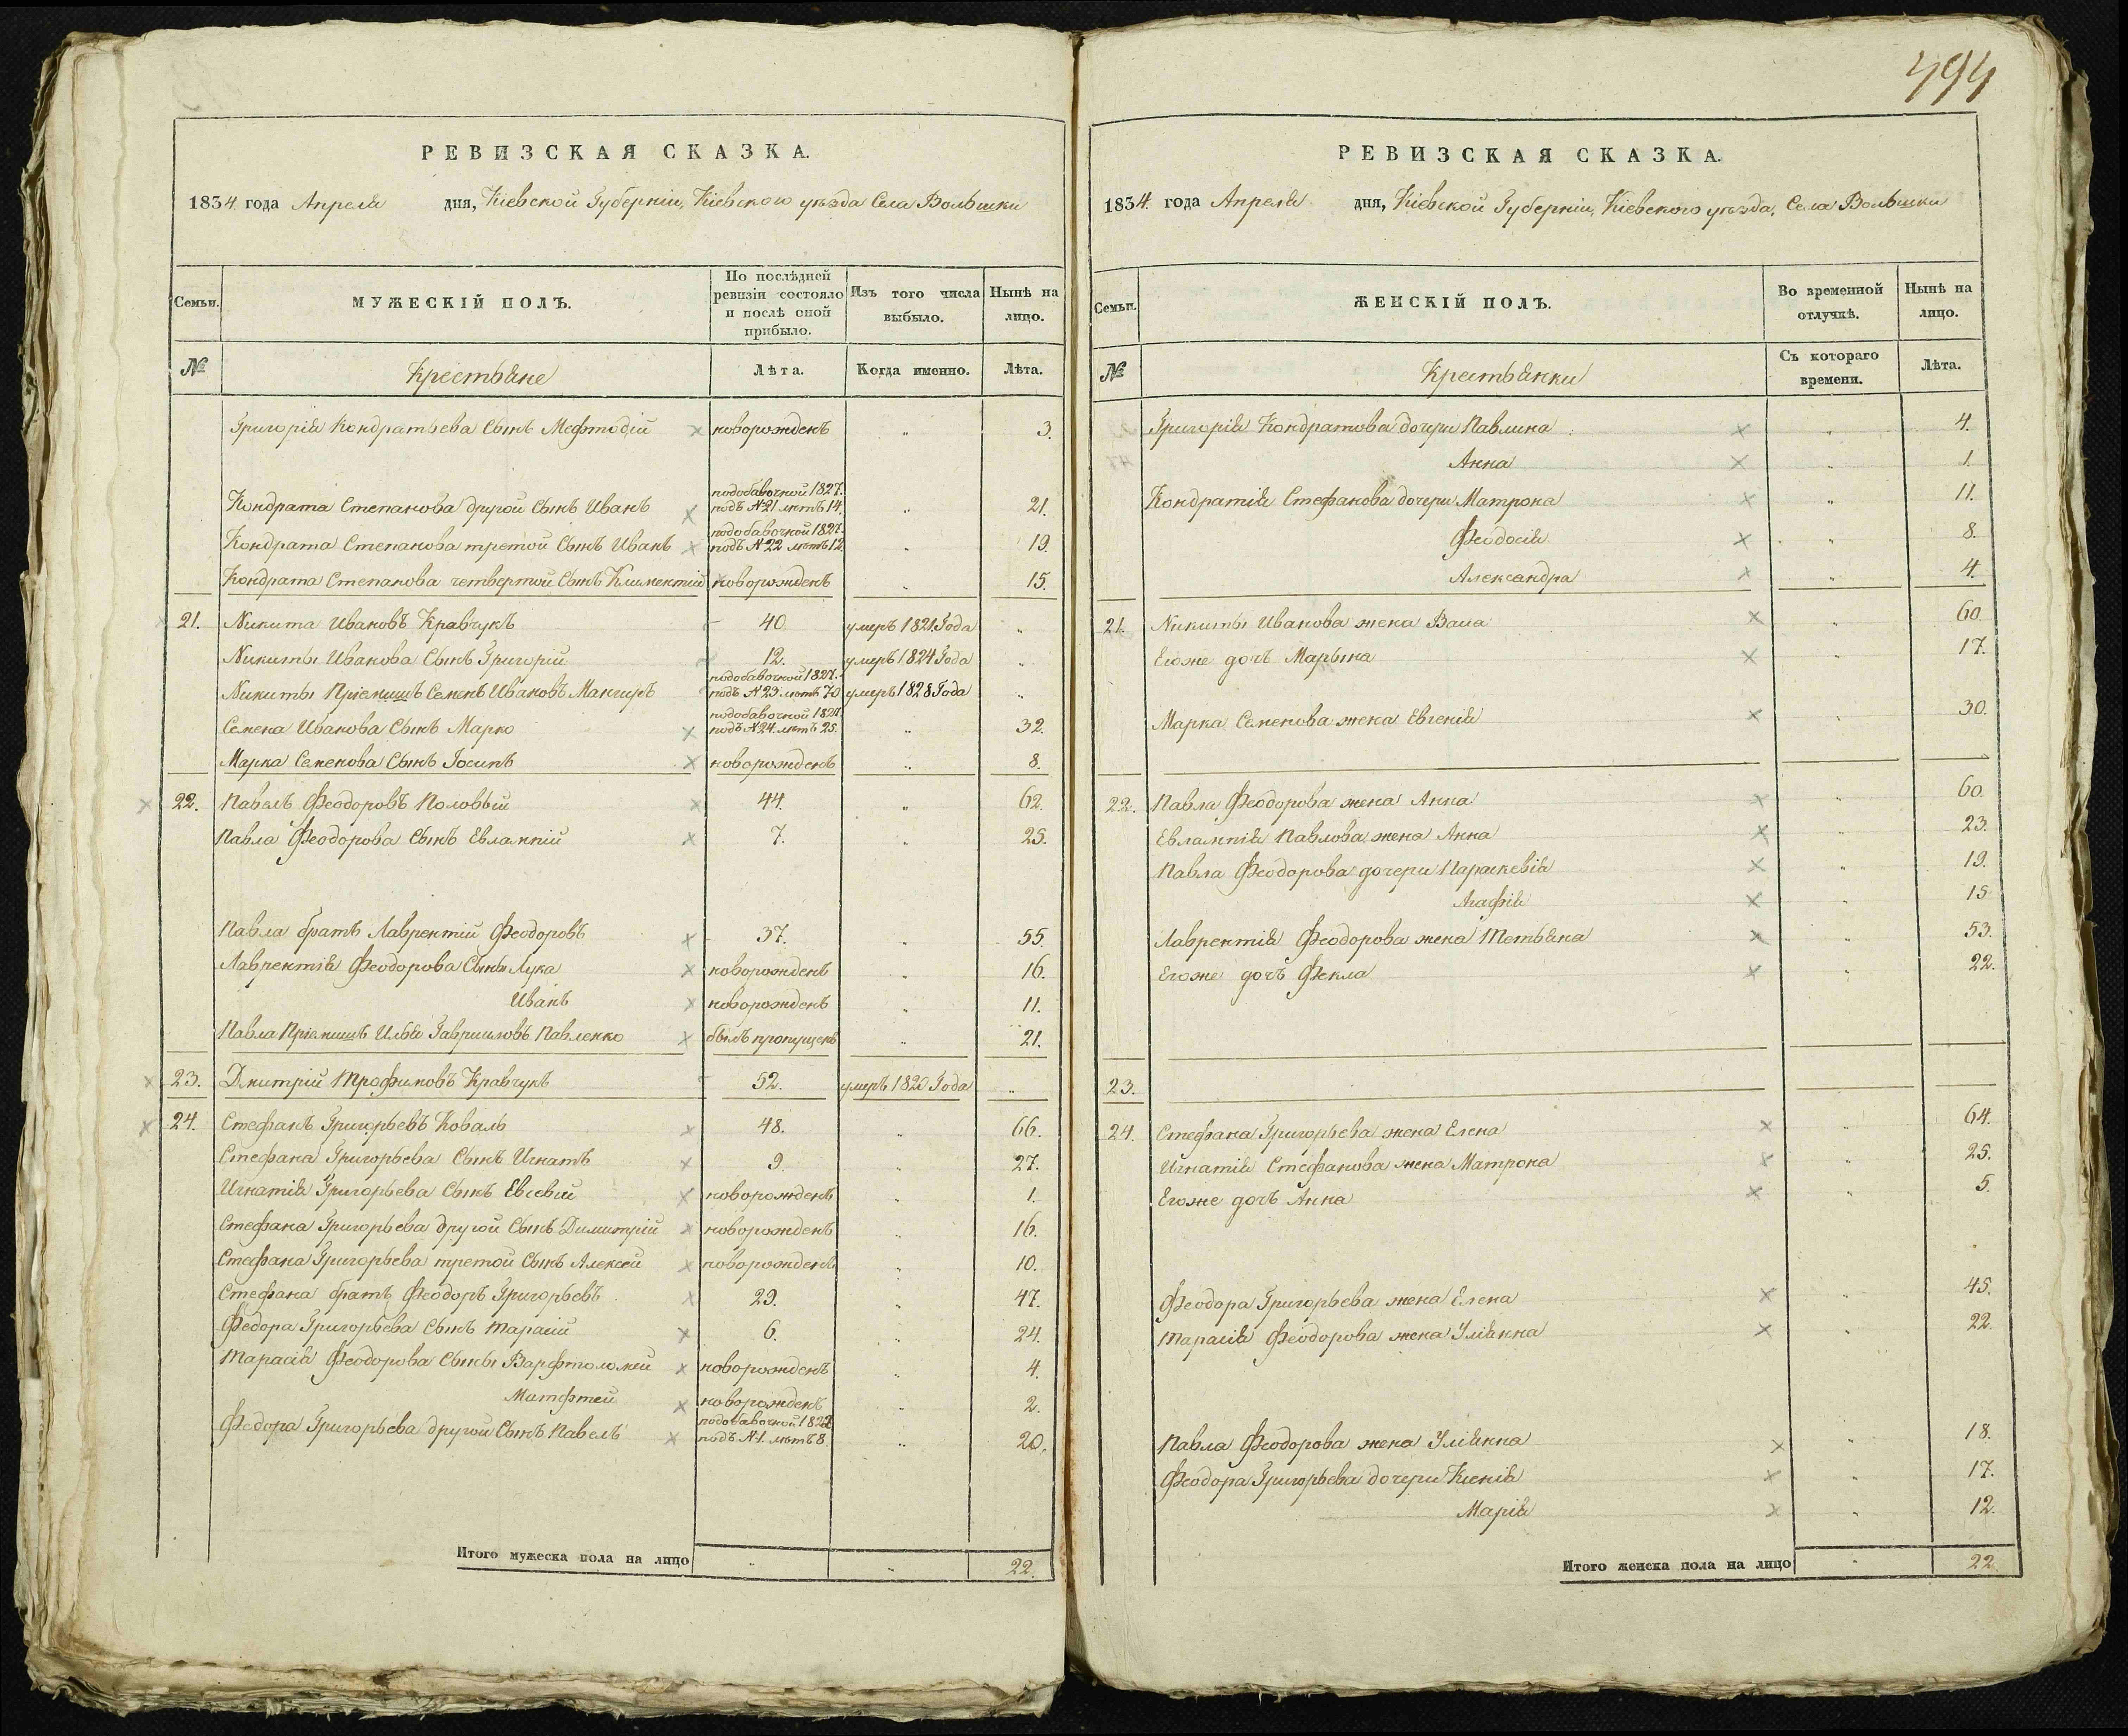 494
РЕВИЗСКАЯ СКАЗКА.
1834 года Апреля дня, Кіевской Губерніи, Кіевского уезда Села Вольшки
Семьи.
МУЖЕСКІЙ ПОЛЪ.
По послѣдней ревизіи состояло и послѣ оной прибыло.
Изъ того числа выбыло.
Нынѣ на лицо.
№
Крестьяне
Лѣта.
Когда именно.
Лѣта.
Григорія Кондратьева Сынъ Мефтодій новорожденъ " 3.
Кондрата Степанова другой Сынъ Иванъ подобавочной 1827. подъ №21 летъ 14. " 21.
Кондрата Степанова третой Сынъ Иванъ подобавочной 1827. подъ №22 летъ 12 " 19.
Кондрата Степанова четвертой Сынъ Климентій новорожденъ " 15.
21. Никита Ивановъ Кравчукъ 40. умеръ 1821. Года "
Никиты Иванова Сынъ Григорій 12. умеръ 1824 Года "
Никиты Пріемишъ Семенъ Ивановъ подобавочной 1827. подъ №23. летъ 70 умеръ 1828 Года "
Семена Иванова Сынъ Марко подобавочной 1827. подъ №24. летъ 25. " 32.
Марка Семенова Сынъ Іосипъ новорожденъ " 8.
22. Павелъ Феодоровъ Половый 44. " 62.
Павла Феодорова Сынъ Евлампій 7. " 25.
Павла братъ Лаврентій Феодоровъ 37. " 55.
Лаврентія Феодорова Сыны Лука новорожденъ " 16.
Иванъ новорожденъ " 11.
Павла Пріемишъ Илья Гавриловъ Павленко былъ пропущенъ " 21.
23. Дмитрій Трофимовъ Кравчукъ 52. умеръ 1820 Года "
24. Стефанъ Григорьевъ Коваль 48. " 66.
Стефана Григорьева Сынъ Игнатъ 9. " 27.
Игнатія Григорьева Сынъ Евсевій новорожденъ " 1.
Стефана Григорьева другой Сынъ Димитрій новорожденъ " 16.
Стефана Григорьева третой Сынъ Алексей новорожденъ " 10.
Стефана братъ Феодоръ Григорьевъ 29. " 47.
Федора Григорьева Сынъ Тарасій 6. " 24.
Тарасія Феодорова Сыны Варфтоломей новорожденъ " 4.
Матфтей новорожденъ " 2.
Федора Григорьева другой Сынъ Павелъ подобавочной подъ №1. летъ 8. " 20.
Итого мужеска пола на лицо " " 22.
РЕВИЗСКАЯ СКАЗКА.
1834. года Апреля дня, Кіевской Губерніи, Кіевского уезда, Села Вольшки
Семьи.
ЖЕНСКІЙ ПОЛЪ.
Во временной отлучкѣ.
Нынѣ на лицо.
№
Крестьянки
Съ котораго времени.
Лѣта.
Григорія Кондратова дочери Павлина " 4.
Анна " 1.
Кондратія Стефанова дочери Матрона " 11.
Феодосія " 8.
Александра " 4.
21. Никиты Иванова жена Васа " 60.
Егоже дочъ Марьяна " 17.
Марка Семенова жена Евгенія " 30.
22. Павла Феодорова жена Анна " 60.
Евлампія Павлова жена Анна " 23.
Павла Феодорова дочери Параскевія " 19.
Агафія " 15
Лаврентія Феодорова жена Тетьяна " 53.
Егоже дочъ Фекла " 22.
23.
24. Стефана Григорьева жена Елена " 64.
Игнатія Стефанова жена Матрона " 25.
Егоже дочъ Анна " 5.
Феодора Григорьева жена Елена " 45.
Тарасія Феодорова жена Уліянна " 22.
Павла Феодорова жена Уліянна " 18.
Феодора Григорьева дочери Ксенія " 17.
Марія " 12.
Итого женска пола на лицо " 22.